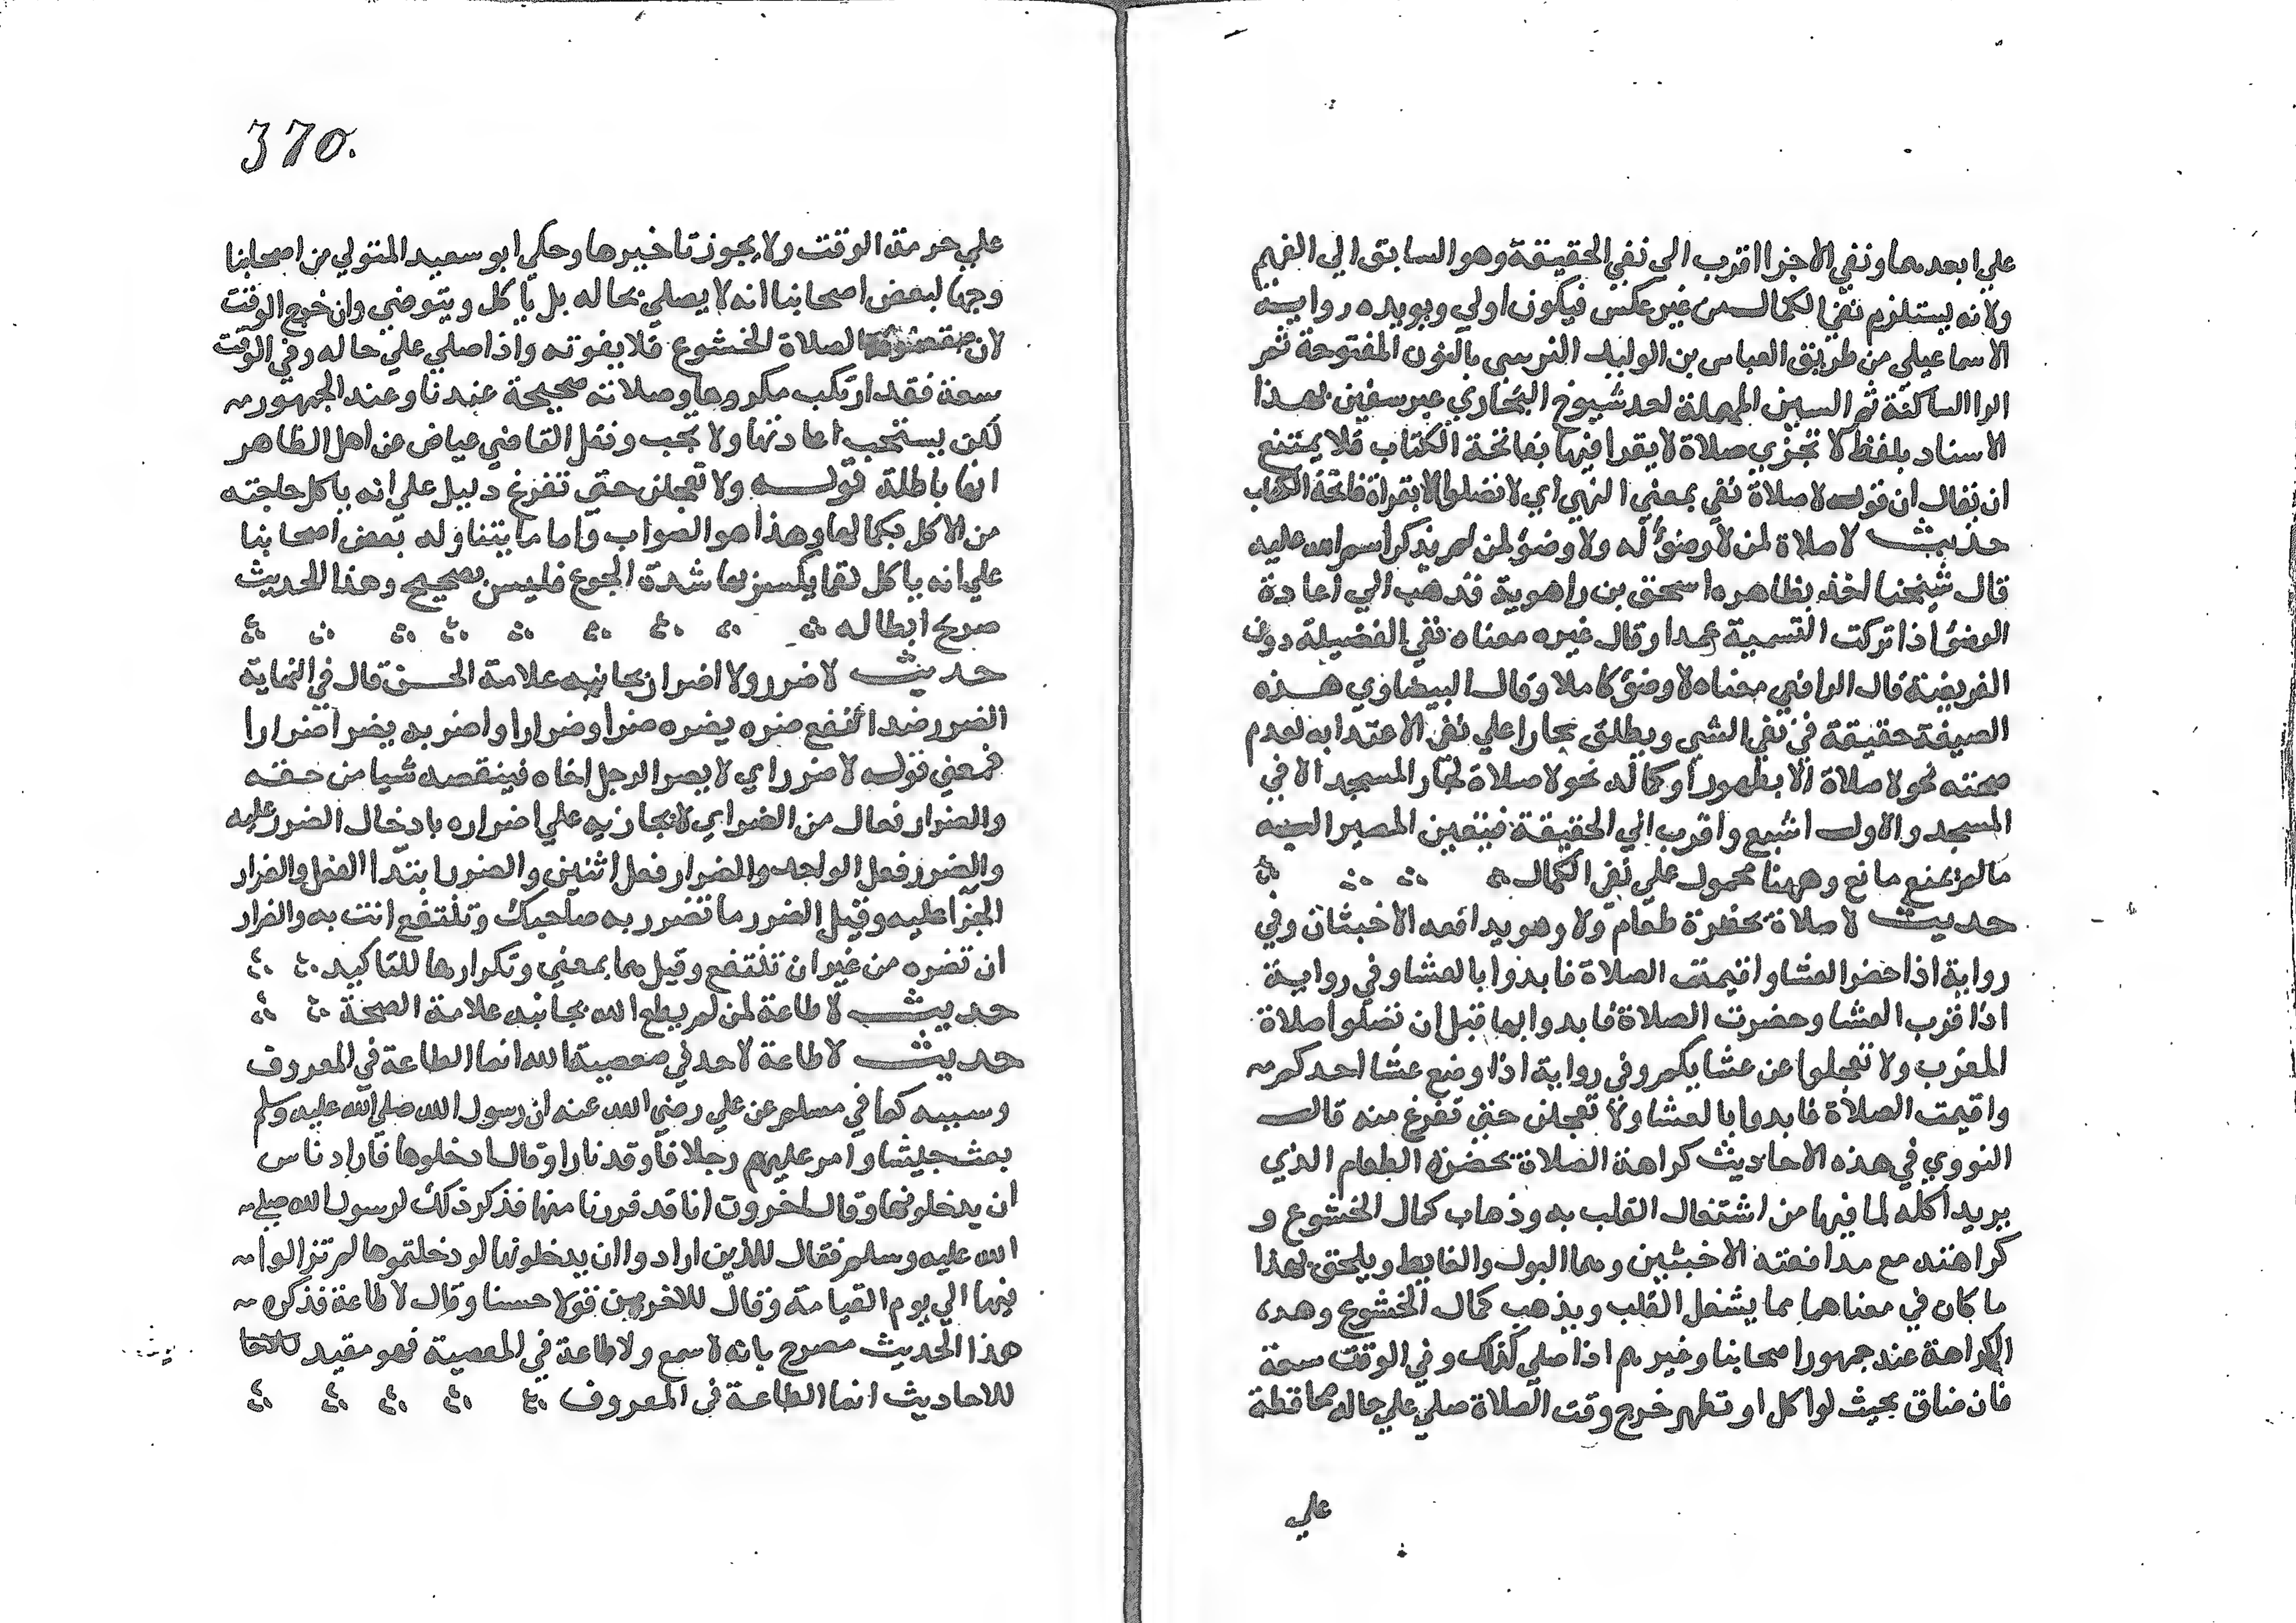 علي ابعدهما ونفي الاجزا اقرب الى نفي الحقيقة وهو السابق الي الفهم
ولانه يستلزم نفي الكمال من غير عكس فيكون اولي ويويده رواية
الاسماعيلي من طريق العباس بن الوليد النرسي بالنون المفتوحة ثم
الرا الساكنة ثم السين المهملة احد شيوخ البخاري عن سفين بهذا
الاسناد بلفظ لا تجزي صلاة لا يقرا فيها بفاتحة الكتاب فلا يمتنع
ان يقال ان قوله لا صلاة نفي بمعني النهي اي لا تصلوا الا بقراة فاتحة الكتاب
حديث لا صلاة لمن لا وضؤ له ولا وضؤ لمن لم يذكر اسم الله عليه
قال شيخنا اخذ بظاهره اسحق بن راهوية فذهب الي اعادة
الوضؤ اذا تركت التسمية عمدا وقال غيره معناه نفي الفضيلة دون
الفريضة قال الرافعي معناه لا وضؤ كاملا وقال البيضاوي هذه
الصيغة حقيقة في نفي الشي ويطلق مجازا علي نفي الاعتداد به لعدم
صحته نحو لا صلاة الا بطهور او كماله نحو لا صلاة لجار المسجد الا في
المسجد والاول اشيع واقرب الي الحقيقة فيتعين المصير اليه
ما لم يمنع مانع وههنا محمول علي نفي الكمال
حديث لا صلاة بحضرة طعام ولا وهو يدافعه الاخبثان وفي
رواية اذا حضر العشا واقيمت الصلاة فابدوا بالعشا وفي رواية
اذا قرب العشا وحضرت الصلاة فابدوا بها قبل ان تصلوا صلاة
المغرب ولا تعجلوا عن عشايكم وفي رواية اذا وضع عشا احدكم
واقيمت الصلاة فابدوا بالعشا ولا تعجلن حتي تفرغ منه قال
النووي في هذه الاحاديث كراهة الصلاة بحضرة الطعام الذي
يريد اكله لما فيها من اشتغال القلب به وذهاب كمال الخشوع و
كراهته مع مدافعته الاخبثين وهما البول والغايط ويلحق بهذا
ما كان في معناهما مما يشغل القلب ويذهب كمال الخشوع وهده
الكراهة عند جمهور اصحابنا وغيرهم اذا صلي كذلك وفي الوقت سعة
فان ضاق بحيث لو اكل او تطهر خرج وقت الصلاة صلي علي حاله محافظة
علي
370.
علي حرمة الوقت ولا يجوز تاخيرها وحكي ابو سعيد المتولي من اصحابنا
وجها لبعض اصحابنا انه لا يصلي بحاله بل ياكل ويتوضي وان خرج الوقت
لان مقصود الصلاة الخشوع فلا يفوته واذا صلي علي حاله وفي الوقت
سعة فقد ارتكب مكروها وصلاته صحيحة عندنا وعند الجمهور
لكن يستحب اعادتها ولا يجب ونقل القاضي عياض عن اهل الظاهر
انها باطلة قوله ولا تعجلن حتي تفرغ دليل علي انه ياكل حاجته
من الاكل بكمالها وهذا هو الصواب واما ما يتناوله بعض اصحابنا
علي انه ياكل لقما يكسر بها شدة الجوع فليس بصحيح وهذا الحديث
صرح ابطاله
حديث لا ضرر ولا اضرار بجانبه علامة الحسن قال في النهاية
الضرر ضد النفع ضره يضره ضرا وضرارا واضر به يضر اضرارا
فمعني قوله لا ضرر اي لا يصر الرجل اخاه فينقصه شيا من حقه
والضرار فعال من الضر اي لا يجازيه علي اضراره بادخال الضرر عليه
والضرر فعل الواحد والضرار فعل اثنين والضرر ابتدا الفعل والضرار
الجزا عليه وقيل الضرر ما تضرر به صاحبك وتنتفع انت به والضرار
ان تضره من غير ان تنتفع وقيل هما بمعني وتكرارها للتاكيد
حديث لا طاعة لمن لم يطع الله بجانبه علامة الصحة
حديث لا طاعة لاحد في معصية الله انما الطاعة في المعروف
وسببه كما في مسلم عن علي رضي الله عنه ان رسول الله صلي الله عليه وسلم
بعث جيشا وامر عليهم رجلا فاوقد نارا وقال ادخلوها فاراد ناس
ان يدخلونها وقال اخروت انا قد فررنا منها فذكر ذلك لرسول الله صلي
الله عليه وسلم فقال للذين ارادوا ان يدخلونها لو دخلتموها لم تزالوا
فيها الي يوم القيامة وقال للاخرين قولا حسنا وقال لا طاعة فذكره
هذا الحديث مصرح بانه لا سمع ولا طاعة في المعصية فهو مقيد
للاحاديث انما الطاعة في المعروف